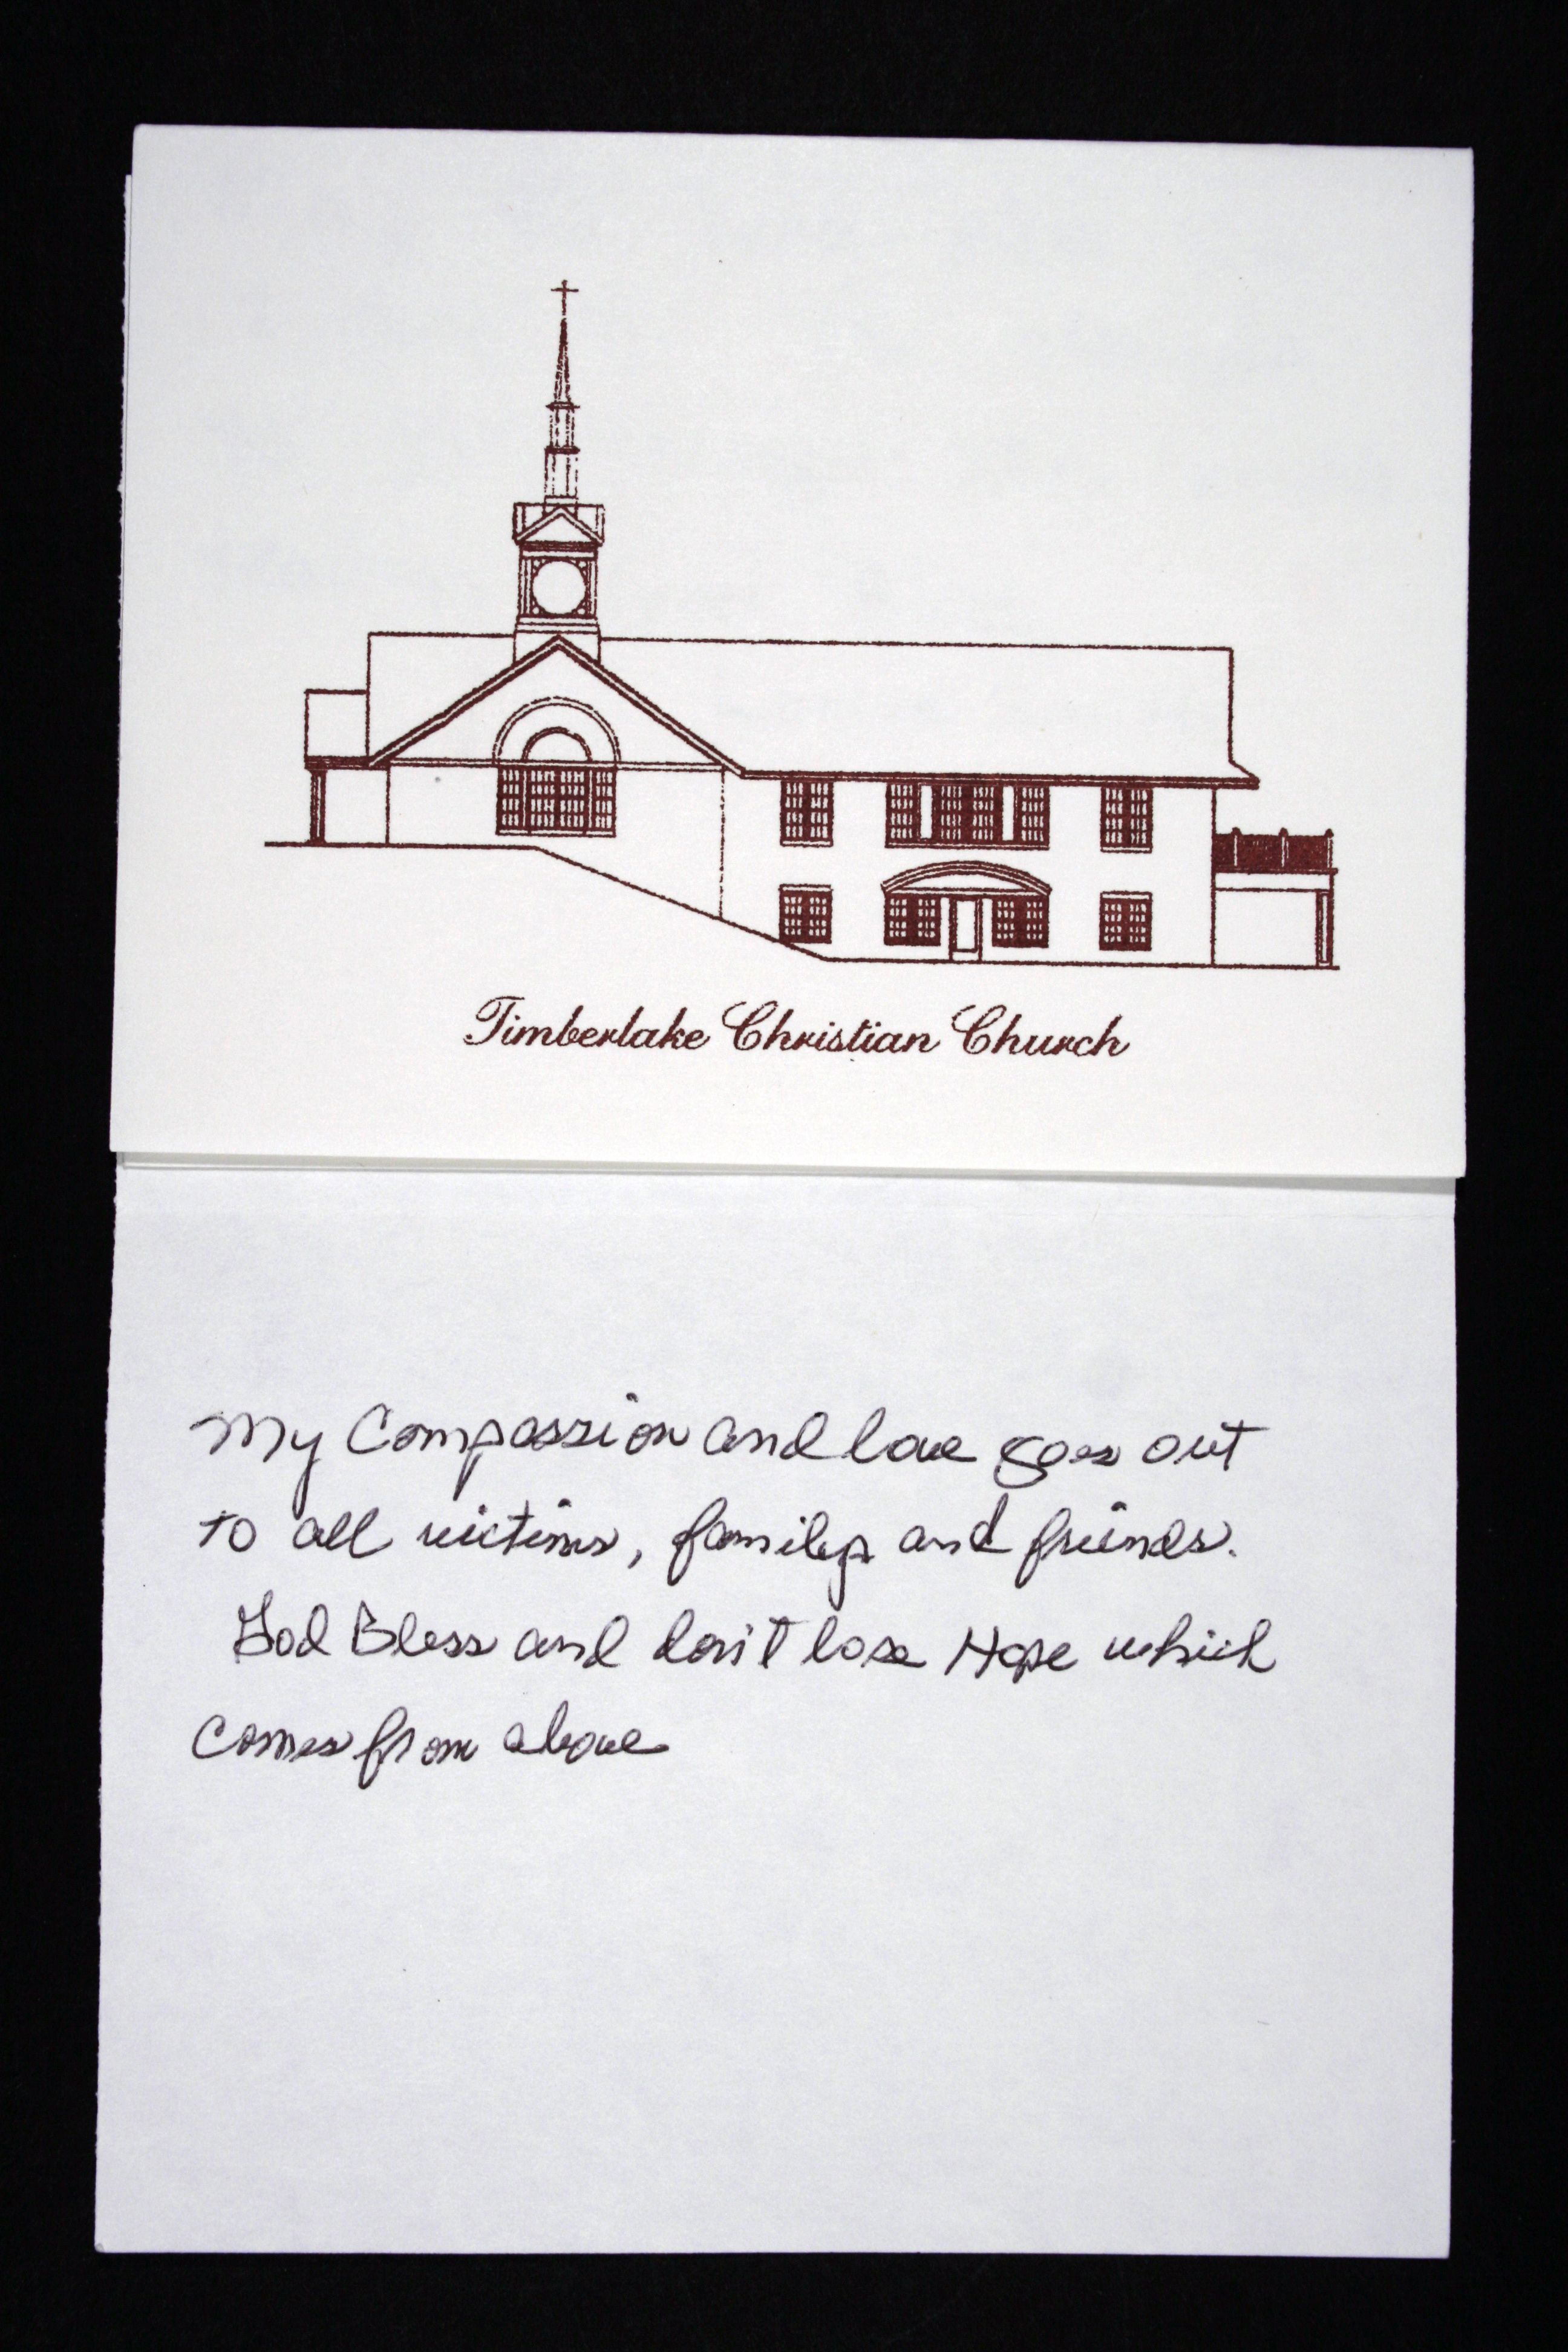 Timberlake Christian Church
My Compassion and love goes out
to all victims, family and friends.
God Bless and don't lose Hope which
comes from above